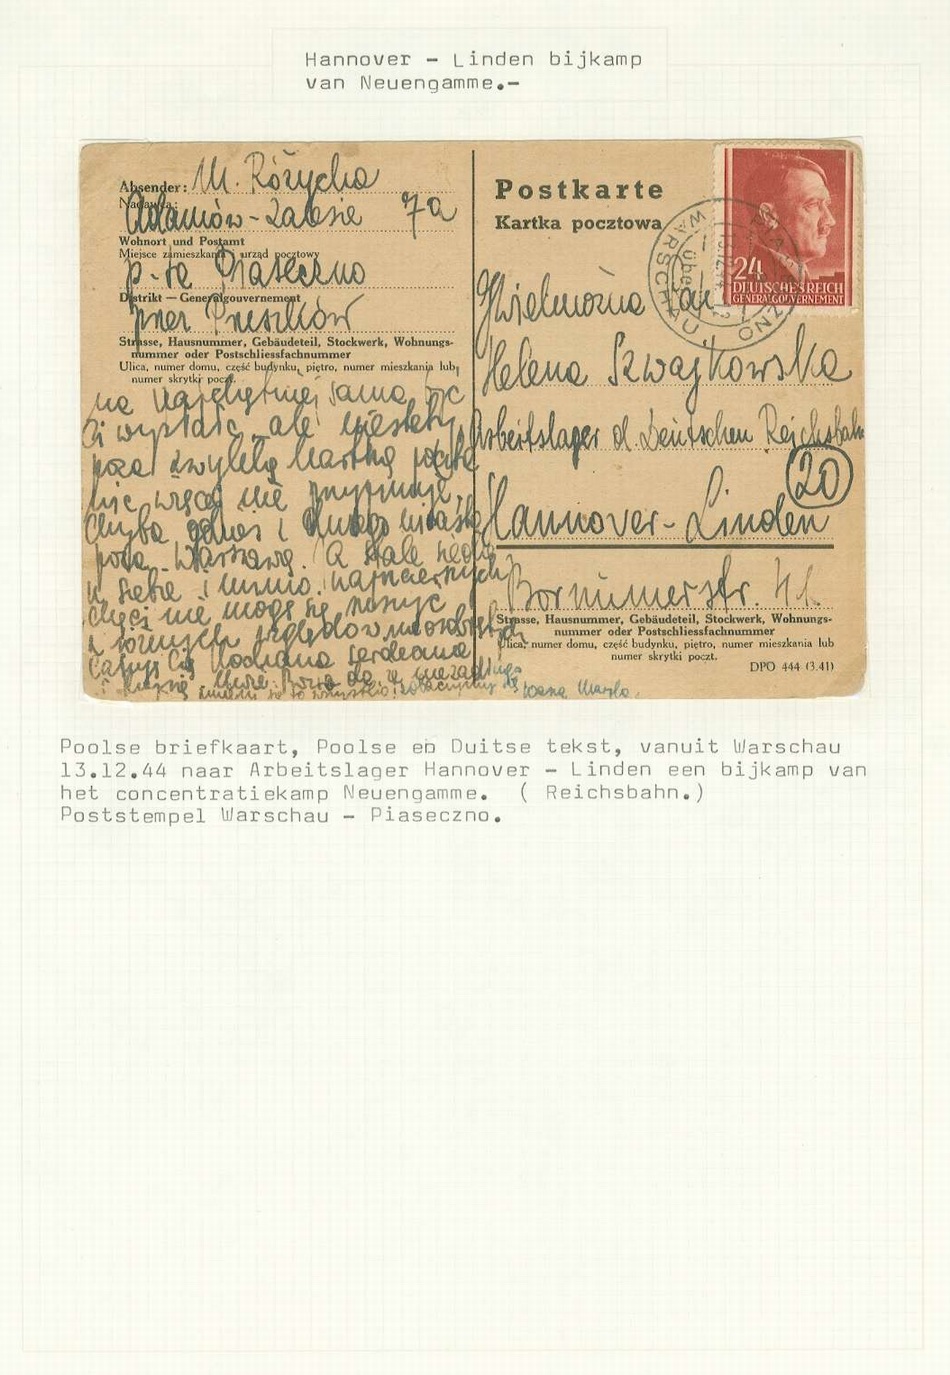 Hannover - Linden bijkamp
van Neuengamme.-
Absender: M. Różycka
Nadawca:
Adamów-Zalesie 7a
Wohnort und Postamt
Miejsce zamieszkania i urząd pocztowy
p-ta Piaseczno
Distrikt — Generalgouvernement
przez Pruszków
Strasse, Hausnummer, Gebäudeteil, Stockwerk, Wohnungs-
nummer oder Postschliessfachnummer
Ulica, numer domu, część budynku, piętro, numer mieszkania lub
numer skrytki poczt.
na najchętniej sama
Ci wysłać, ale niestety
poza zwykłą kartką poczta
nic więcej nie przyjmuje.
Chyba gdzieś z
poza Warszawą. A stale siedzę
u siebie i mimo najszczerszych
chęci nie mogę się ruszyć
z różnych względów
Całuję Cię Kochana serdecznie
Postkarte
Kartka pocztowa
24
DEUTSCHES REICH
GENERALGOUVERNEMENT
PIASECZNO
über
WARSCHAU
13.12.44
Wielmożna Pani
Helena Szwajkowska
Arbeitslager d. Deutschen Reichsbahn
20
Hannover-Linden
Bornumerstr.
Strasse, Hausnummer, Gebäudeteil, Stockwerk, Wohnungs-
nummer oder Postschliessfachnummer
Ulica, numer domu, część budynku, piętro, numer mieszkania lub
numer skrytki poczt.
DPO 444 (3.41)
Poolse briefkaart, Poolse en Duitse tekst, vanuit Warschau
13.12.44 naar Arbeitslager Hannover - Linden een bijkamp van
het concentratiekamp Neuengamme. ( Reichsbahn.)
Poststempel Warschau - Piaseczno.